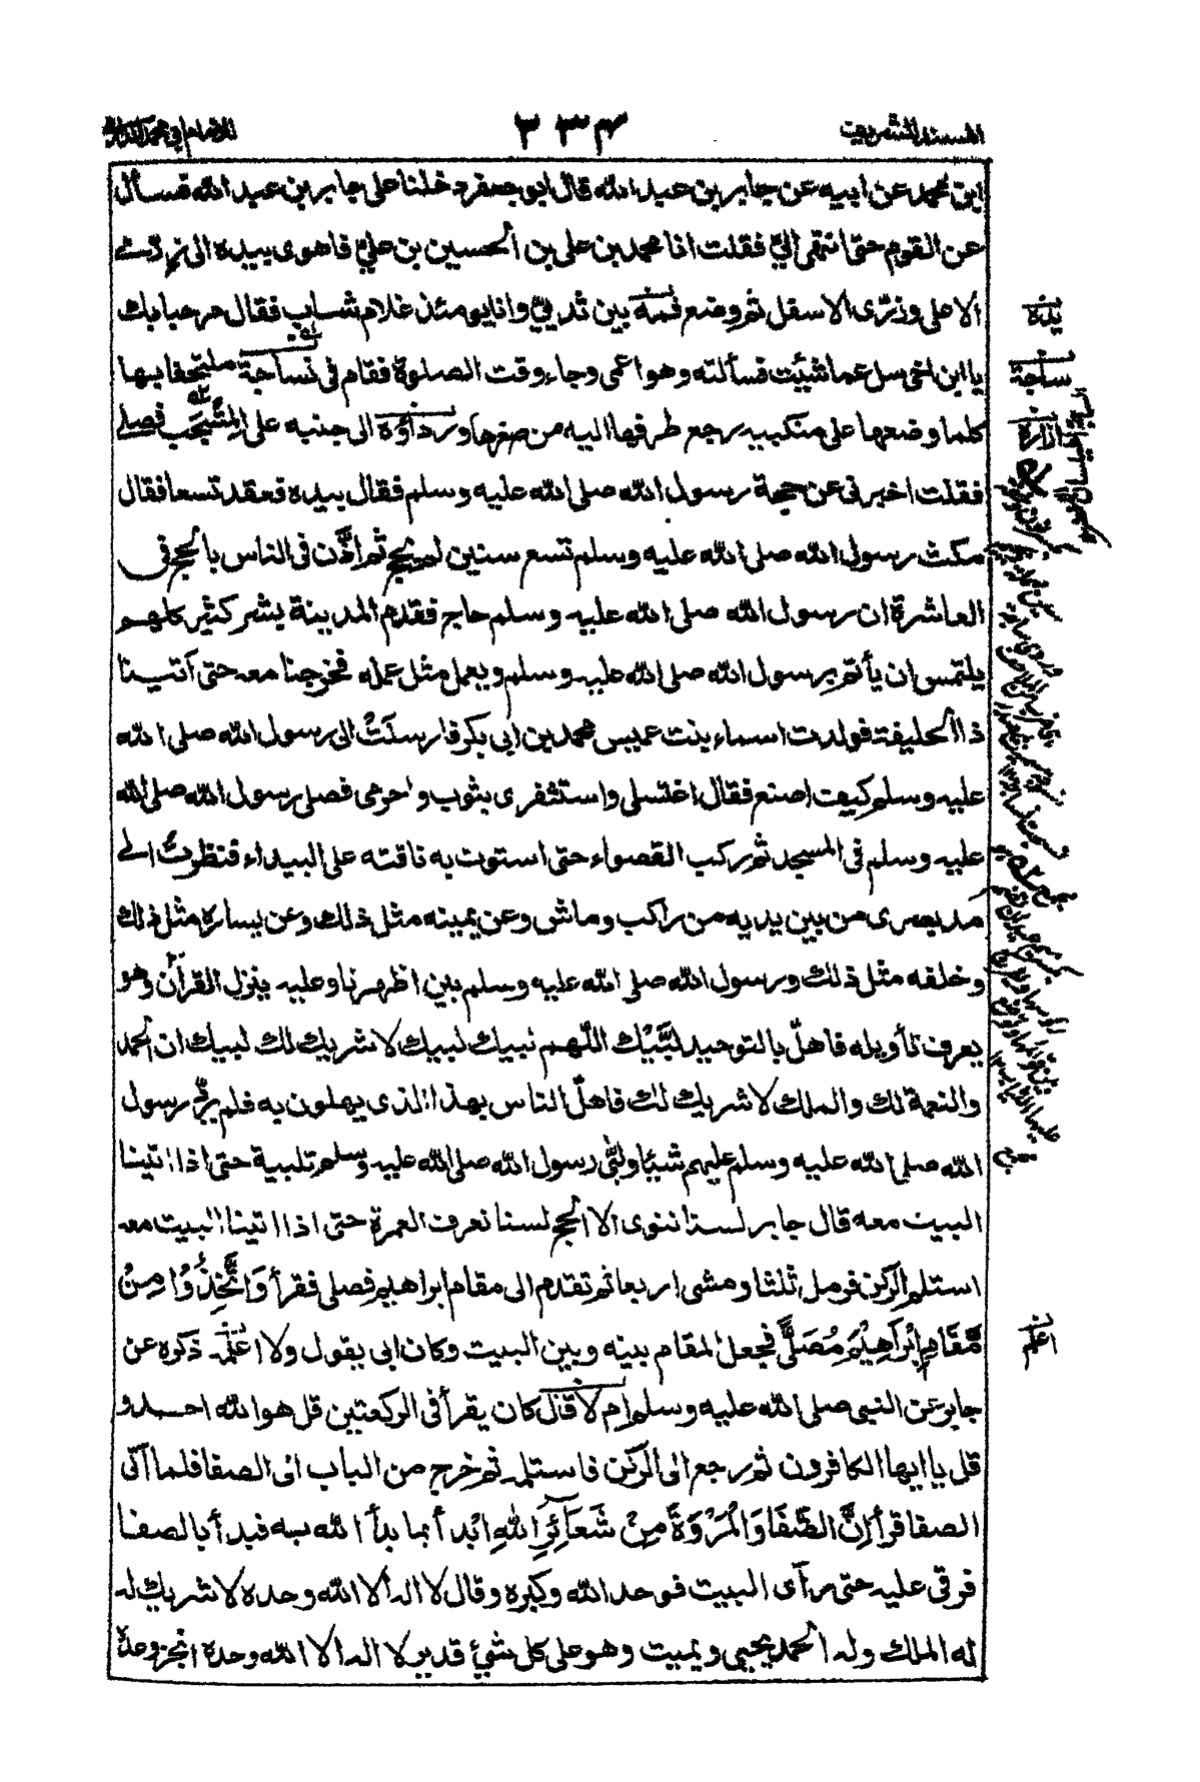 المسند الشريف
٣٣٤
للامام ابي محمد الدارمي
ابن محمد عن ابيه عن جابر بن عبد الله قال ابو جعفر دخلنا على جابر بن عبد الله فسأل
عن القوم حتى انتهى اليّ فقلت انا محمد بن علي بن الحسين بن عليّ فاهوى بيده الى زرّى
الاعلى وزرّى الاسفل ثم وضع فمه بين ثدييّ وانا يومئذ غلام شاب فقال مرحبا بك
يا ابن اخي سل عما شئت فسألته وهو اعمى وجاء وقت الصلوة فقام في نساجة ملتحفا بها
كلما وضعها على منكبيه رجع طرفها اليه من صغرها ورداؤه الى جنبه على المِشْجَب فصلى
فقلت اخبرنى عن حجة رسول الله صلى الله عليه وسلم فقال بيده فعقد تسعا فقال
مكث رسول الله صلى الله عليه وسلم تسع سنين لم يحج ثم اذّن فى الناس بالحج فى
العاشرة ان رسول الله صلى الله عليه وسلم حاج فقدم المدينة بشر كثير كلهم
يلتمس ان يأتم برسول الله صلى الله عليه وسلم ويعمل مثل عمله فخرجنا معه حتى اتينا
ذا الحليفة فولدت اسماء بنت عميس محمد بن ابي بكر فارسلَتْ الى رسول الله صلى الله
عليه وسلم كيف اصنع فقال اغتسلى واستثفرى بثوب واحرمى فصلى رسول الله صلى الله
عليه وسلم فى المسجد ثم ركب القصواء حتى استوت به ناقته على البيداء فنظرت الى
مد بصرى من بين يديه من راكب وماش وعن يمينه مثل ذلك وعن يساره مثل ذلك
وخلفه مثل ذلك ورسول الله صلى الله عليه وسلم بين اظهرنا وعليه ينزل القرآن وهو
يعرف تأويله فاهلّ بالتوحيد لبَّيْك اللّهم لبيك لبيك لا شريك لك لبيك ان الحمد
والنعمة لك والملك لا شريك لك فاهلّ الناس بهذا الذى يهلون به فلم يردّ رسول
الله صلى الله عليه وسلم عليهم شيئا ولبّى رسول الله صلى الله عليه وسلم تلبية حتى اذا اتينا
البيت معه قال جابر لسنا ننوى الا الحج لسنا نعرف العمرة حتى اذا اتينا البيت معه
استلم الركن فرمل ثلثا ومشى اربعا ثم تقدم الى مقام ابراهيم فصلى فقرأ وَاتَّخِذُوْا مِنْ
مَّقَامِ اِبْرَاهِيْمَ مُصَلًّى فجعل المقام بينه وبين البيت وكان ابى يقول ولا اعلمه ذكره عن
جابر عن النبى صلى الله عليه وسلم ام لا قال كان يقرأ فى الركعتين قل هو الله احد و
قل يا ايها الكافرون ثم رجع الى الركن فاستلمه ثم خرج من الباب الى الصفا فلما اتى
الصفا قرأ اِنَّ الصَّفَا وَالْمَرْوَةَ مِنْ شَعَآئِرِ اللهِ ابْدأ بما بدأ الله به فبدأ بالصفا
فرقى عليه حتى رآى البيت فوحد الله وكبره وقال لا اله الا الله وحده لا شريك له
له الملك وله الحمد يحيى ويميت وهو على كل شئ قدير لا اله الا الله وحده انجز وعده
يده
ساجة
ازاره
اعلم